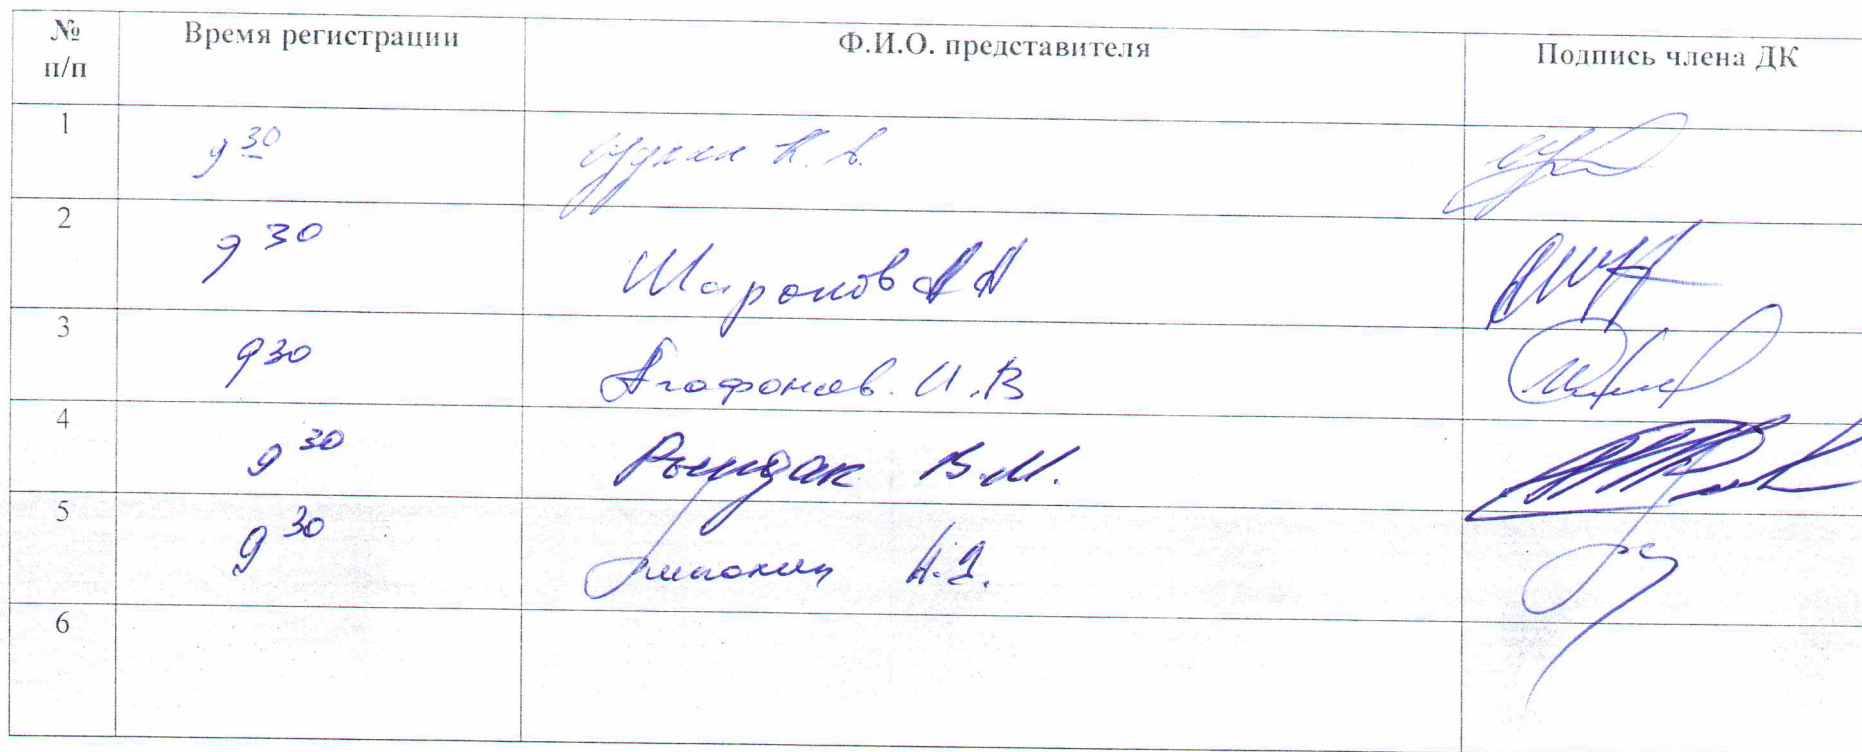 № п/п Время регистрации Ф.И.О. представителя Подпись члена ДК
1 9 30 К. А.
2 9 30 Шаронов А А
3 9 30 Агафонов. И.В
4 9 30 Рындак В.М.
5 9 30
6